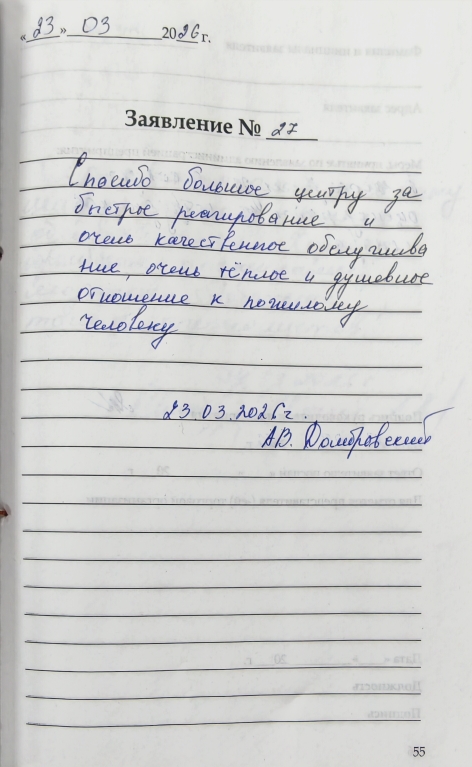 «23» 03 2026 г.
Заявление № 27
Спасибо большое центру за
быстрое реагирование и
очень качественное обслужива
ние, очень тёплое и душевное
отношение к пожилому
человеку
23.03.2026г
А.В. Домбровский
55